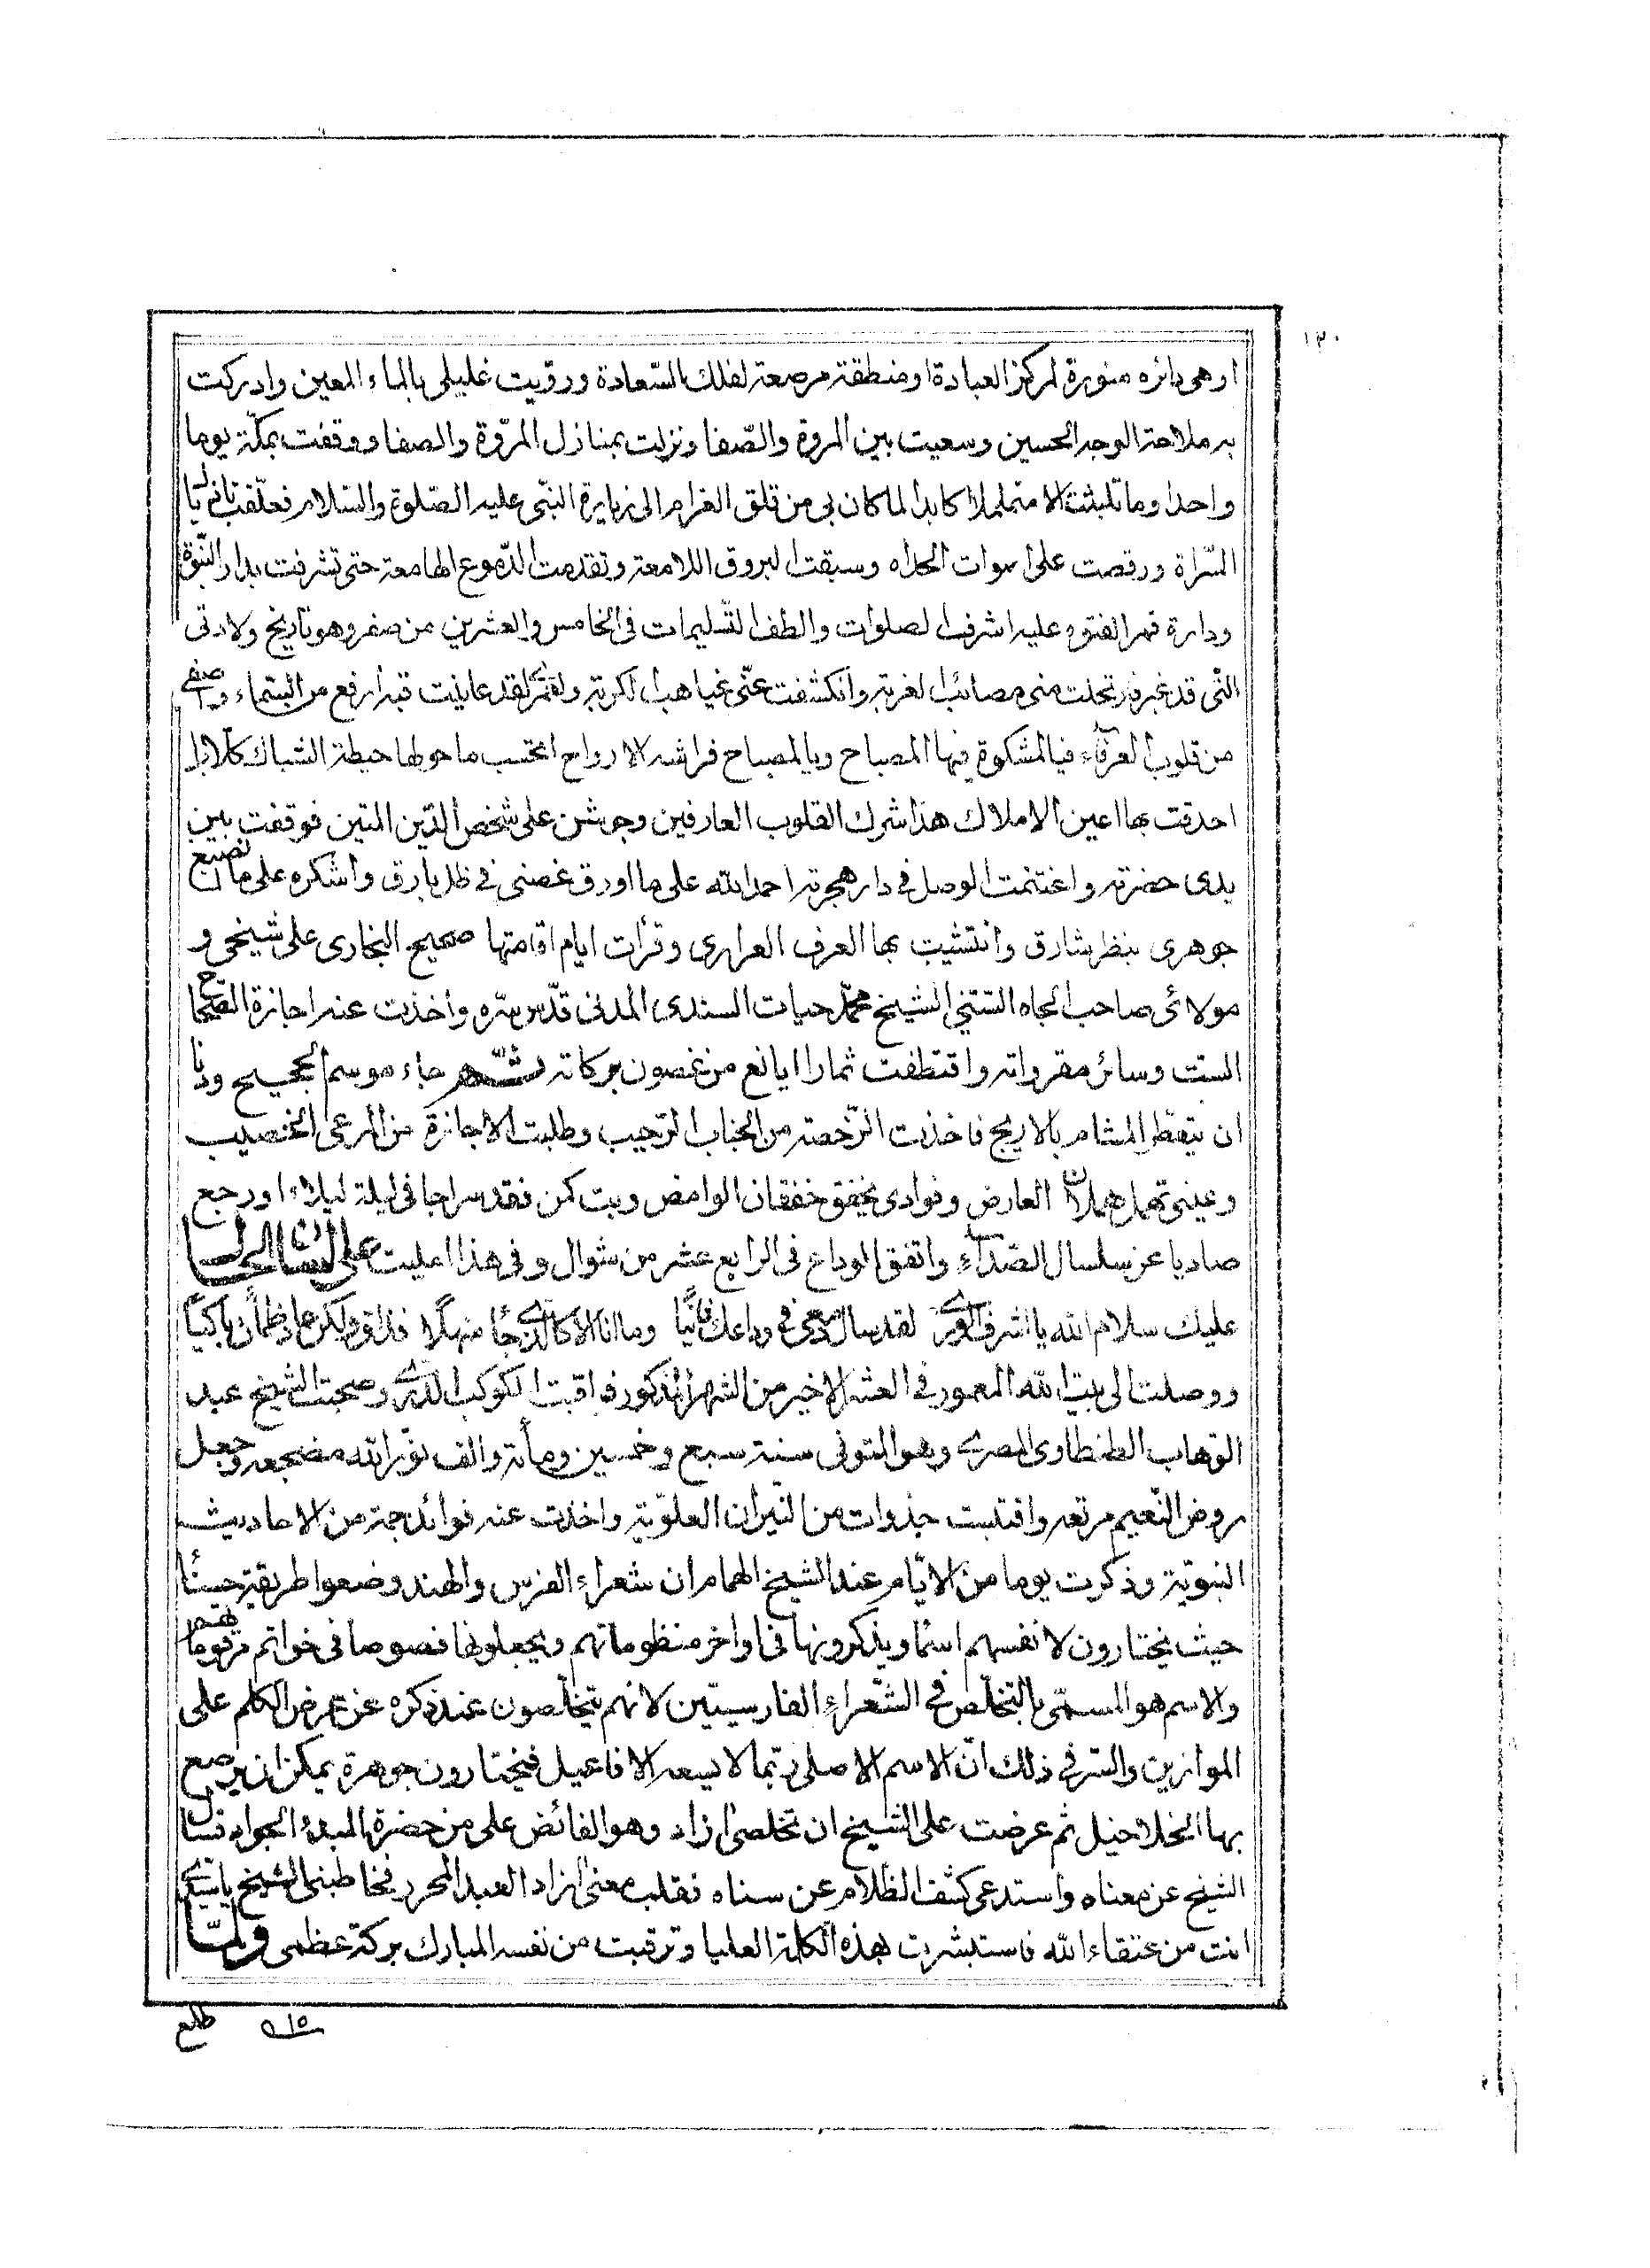 ١٣٠
او هى دائره منورة لمركز العبادة او منطقة مرصعة لفلك السّعادة وروّيت غليلى بالماء المعين وادركت
به ملاحة الوجه الحسين وسعيت بين المروة والصّفا ونزلت بمنازل المرّوة والصفا ووقفت بمكّة يوما
واحدا وما تلبثت الا متململا كابدا لما كان بى من قلق الغرام الى زيارة النبّى عليه الصّلوة والسّلام فعلّقت
السّراة ورقصت على اصوات الحداه وسبقت البروق اللامعة وتقدمت الدّموع الهامعة حتى تشرفت بدار النّبوة
ودارة قمر الفتوه عليه اشرف الصلوات والطف التّسليمات فى الخامس والعشرين من صفر وهو تاريخ ولادتى
التّى قد غبر فارتحلت منى مصائب الغربة وانكشفت عنّى غياهب الكربة ولعمرى لقد عاينت قبة ارفع من السّماء واصفى
من قلوب العرفاء فيا لمشكوة فيها المصباح ويا لمصباح فراشه الارواح اتحتسب ما حولها حيطة الشباك كلا بل
احدقت بها اعين الاملاك هذا شرك القلوب العارفين وجوشن على شخص الدّين المتين فوقفت بين
يدى حضرته واغتنمت الوصل فى دار هجرته احمد الله على ما اورق غصنى فى ظل بارق واشكره على ما نصع
جوهرى بنظر شارق وانتشيت بها العرف العرارى وقرأت ايام اقامتها صحيح البخارى على شيخى و
مولائى صاحب الجاه السّنّى الشيخ محمّد حيات السندى المدنى قدّس سّره واخذت عنه اجازة الصّحاح
الستت وسائر مقرواته واقتطفت ثمارا ايانع من غصون بركاته ثمّ جاء موسم الحجيج ودنا
ان يتعّطر المشام بالاريج فاخذت الرّخصة من الجناب الرّحيب وطلبت الاجازة من المرعى الخصيب
وعينى تهمل هملان العارض وفوادى يخفق خفقان الوامض وبت كمن فقد سراجا فى ليلة ليلاء او رجع
صاديا عن سلسال الصّداء واتفق الوداع فى الرابع عشر من شوال وفى هذا امليت على لسان الحال
عليك سلام الله يا اشرف الورى لقد سال دمعى فى وداعك قانيا وما انا الا كالذى جاء منهلا فذاق ولكن عاد ظمأن باكيا
ووصلت الى بيت الله المعمور فى العشر الاخير من الشهر المذكور فراقبت الكوكب الدرّى وصحبت الشيخ عبد
الوّهاب الطنطاوى المصرى وهو المتوفى سنة سبع وخمسين ومأة والف نوّر الله مضجعه وجعل
روض النّعيم مرتعه واقتبست جذوات من النّيران العلوّية واخذت عنه فوائد جمة من الاحاديث
النبّوية وذكرت يوما من الايّام عند الشيخ الهمام ان شعراء الفرس والهند وضعوا طريقة حسنا
حيث يختارون لانفسهم اسّما ويذكرونها فى اواخر منظوماتهم ويجعلونها فصوصا فى خواتم مرقوماتهم
والاسم هو المسمّى بالتخلّص فى الشّعراء الفارسيّين لانهم يتخلّصون عند ذكره عن عرض الكلم على
الموازين والسّر فى ذلك انّ الاسم الاصلى ربّما لا يسعه الافاعيل فيختارون جوهرة يمكن ان يرصع
بها الخلاخيل ثم عرضت على الشّيخ ان تخلصى آزاد وهو الفائض على من حضرة المبدء الجواد فسأل
الشيخ عن معناه واستدعى كشف الظّلام عن سناه فقلت معنى آزاد العبد المحرر فخاطبنى الشّيخ يا سيّدى
انت من عتقاء الله فاستبشرت بهذه الكلمة العليا وترقبت من نفسه المبارك بركة عظمى ولمّا
طلع